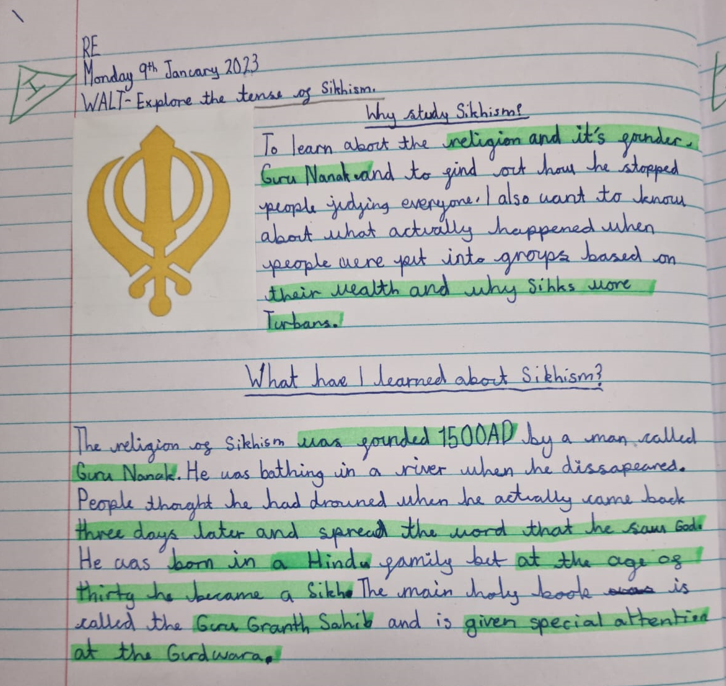 RE
Monday 9th January 2023
WALT- Explore the tense of Sikhism.
Why study Sikhism?
To learn about the religion and it's founder,
Guru Nanak and to find out how he stopped
people judging everyone. I also want to know
about what actually happened when
people were put into groups based on
their wealth and why Sihks wore
Turbans.
What have I learned about Sikhism?
The religion of Sikhism was founded 1500AD by a man called
Guru Nanak. He was bathing in a river when he dissapeared.
People thought he had drowned when he actually came back
three days later and spread the word that he saw God.
He was born in a Hindu family but at the age of
thirty he became a Sikh. The main holy book is
called the Guru Granth Sahib and is given special attention
at the Gurdwara.